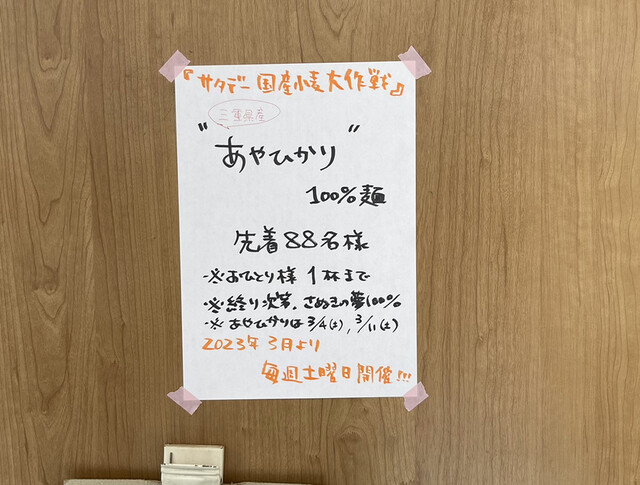 『サタデー国産小麦大作戦』
三重県産
"あやひかり"
100%麺
先着88名様
※おひとり様 1杯まで
※終り次第、さぬきの夢100%
※あやひかりは3/4(土),3/11(土)
2023年3月より
毎週土曜日開催!!!